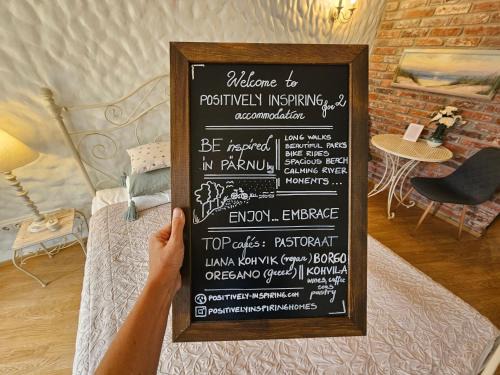 Welcome to
POSITIVELY INSPIRING for 2
accommodation
BE inspired
in PÄRNU
LONG WALKS
BEAUTIFUL PARKS
BIKE RIDES
SPACIOUS BEACH
CALMING RIVER
MOMENTS ...
ENJOY... EMBRACE
TOP cafés: PASTORAAT
LIANA KOHVIK (vegan) BORGO
OREGANO (greek) KOHVILA
wines, coffee
cakes
pastry
POSITIVELY-INSPIRING.COM
POSITIVELYINSPIRINGHOMES